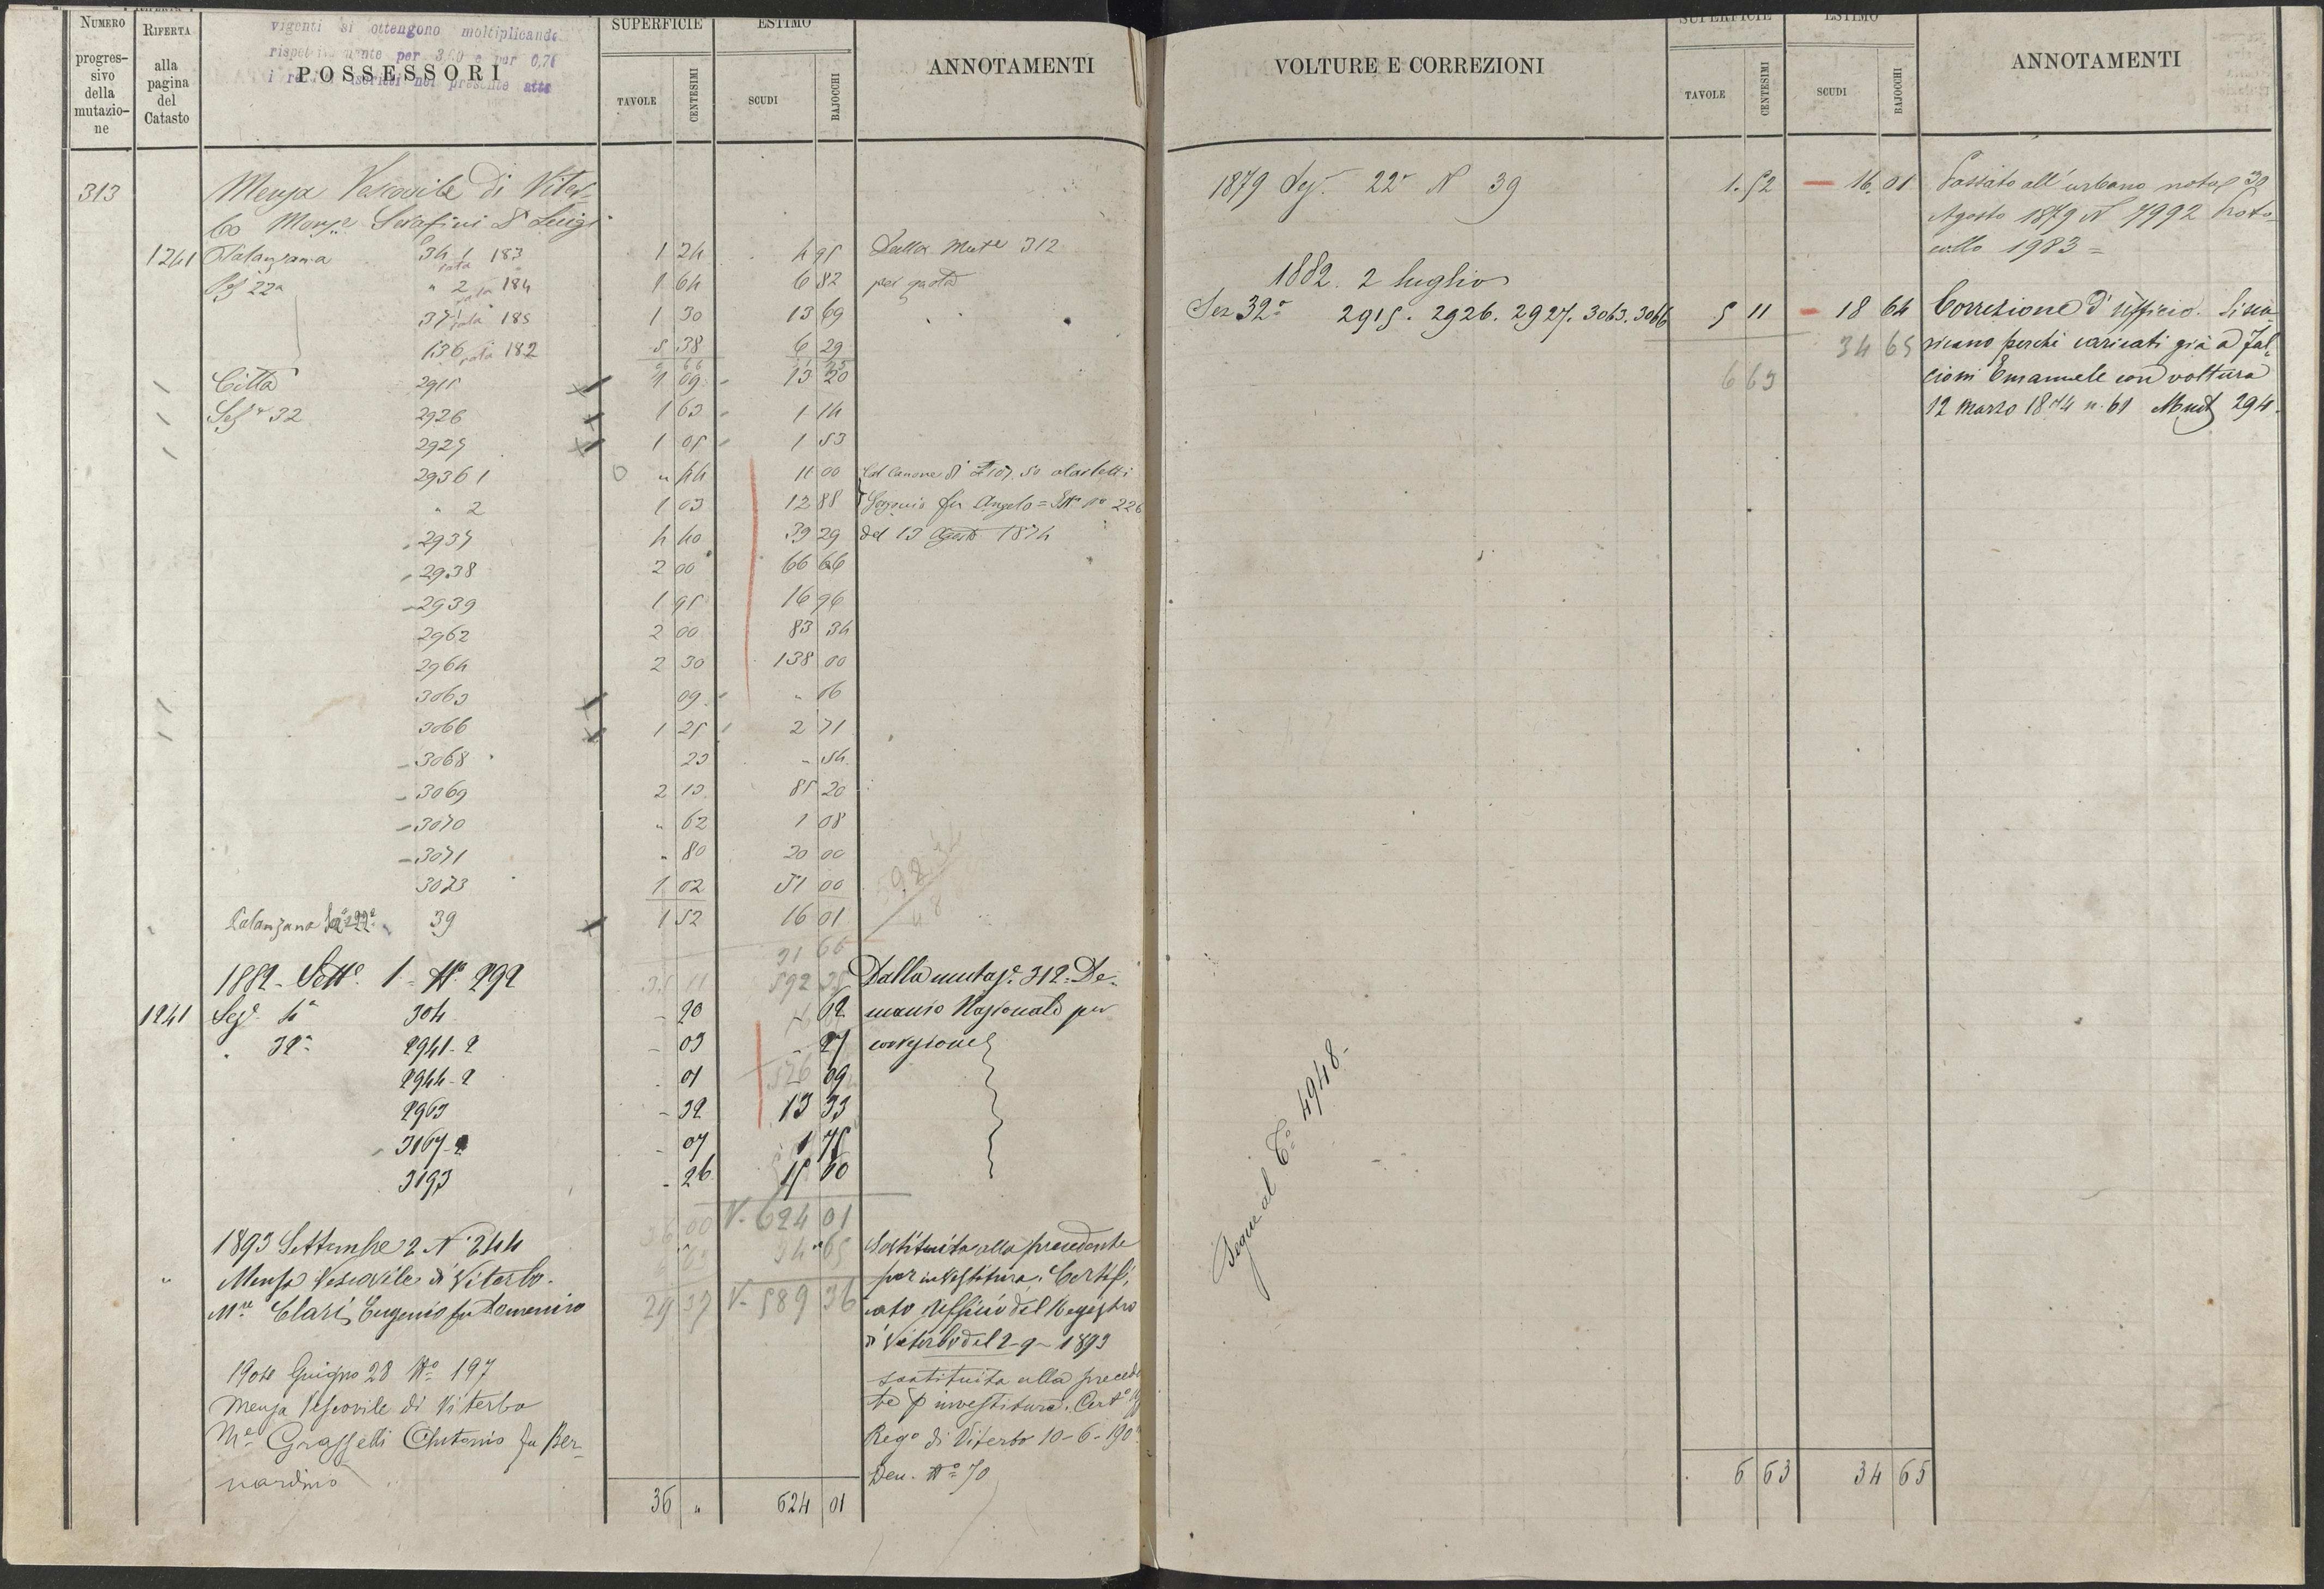 NUMERO progressivo della mutazione
RIFERTA alla pagina del Catasto
vigenti si ottengono moltiplicando
per 0,76
i nel presente atto
POSSESSORI
SUPERFICIE
TAVOLE
CENTESIMI
ESTIMO
SCUDI
BAJOCCHI
ANNOTAMENTI
313 Mensa Vescovile di Viter-
bo Monsr. Serafini Dn Luigi
1241 Palanzana 34 1 rata 183 1 24 4 95 Dalla Mute 312
Sez 22a " 2 rata 184 1 64 6 82 per quota
37 rata 185 1 30 13 69
136 rata 182 5 38 6 29
Città 2915 1 09 13 20
Sez 32 2926 1 63 1 14
2927 1 05 1 53
2936 1 0 " 44 11 00 Col canone di £ 107.50
" 2 1 03 12 88 fu Angelo = No 226
2937 4 40 39 29 del 13 Agosto 1874
2938 2 00 66 66
2939 1 95 16 96
2962 2 00 83 34
2964 2 30 138 00
3063 09 " 06
3066 1 25 2 71
3068 23 " 54
3069 2 13 85 20
3070 " 62 1 08
3071 " 80 20 00
3073 1 02 51 00
Palanzana Sez 22a 39 1 52 16 01
31 66
1882 - Sette 1 - No 292 35 11 592 35 Dalla mutaze. 312. De-
1241 Seze 4a 304 - 20 62 manio Nazionale per
" 32a 2941-2 - 03 - 27 correzione
2944-2 - 01 09
2963 - 32 13 33
3167-2 - 07 1 75
3193 - 26 15 00
36 00 V. 624 01
1893 Settembre 2 No 244 6 63 34 65 Sostituita alla precedente
" Mensa Vescovile di Viterbo. per investitura. Certifi-
Mre Clari Eugenio fu Domenico 29 37 V. 589 36 cato Ufficio del Registro
di Viterbo del 2-9-1893
1904 Giugno 28 No 197 sostituita alla precede
Mensa Vescovile di Viterbo te p investitura. Certo
Mre Grasselli Antonio fu Ber- Rego di Viterbo 10-6-190
nardino Den. No 70
36 " 624 01
VOLTURE E CORREZIONI
SUPERFICIE
TAVOLE
CENTESIMI
ESTIMO
SCUDI
BAJOCCHI
ANNOTAMENTI
1879 Sez. 22a N 39 1.52 — 16 01 Passato all'urbano nota 30
Agosto 1879 N 7992 Proto-
collo 1983 =
1882. 2 luglio
Sez 32a 2915. 2926. 2927. 3063. 3066 5 11 — 18 64 Correzione d'ufficio. Si sca-
34 65 ricano perchè caricati già a Fal-
6 63 cioni Emanuele con voltura
12 Marzo 1874 n. 61 Mut 294.
Segue al Co 4948.
6 63 34 65